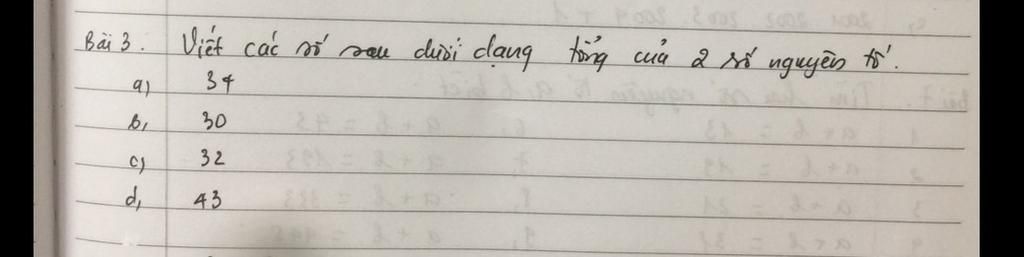 Bài 3. Viết các số sau dưới dạng tổng của 2 số nguyên tố.
a) 34
b, 30
c) 32
d, 43